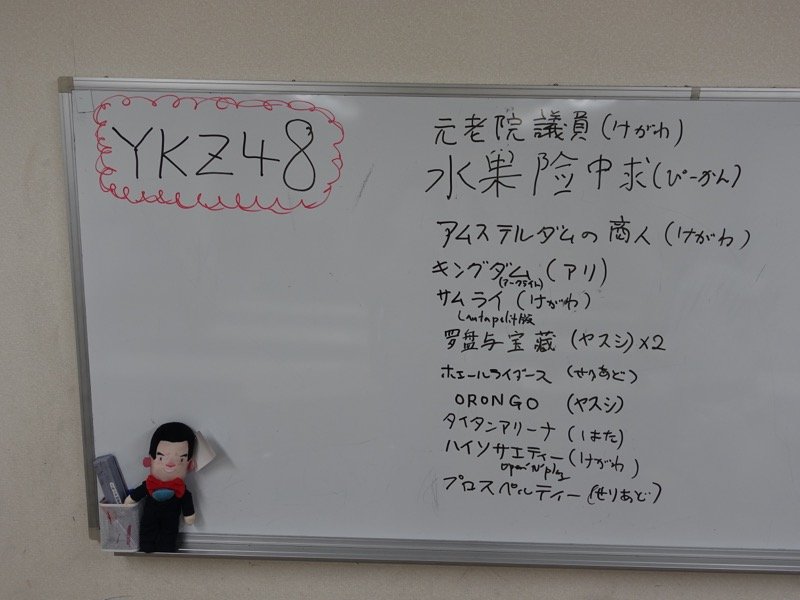 YKZ48
元老院議員(けがわ)
水果险中求(ぴーかん)
アムステルダムの商人(けがわ)
キングダム(アリ)
(アークライト)
サムライ(けがわ)
罗盘与宝藏(ヤスシ)×2
ホエールライダース(せりあど)
ORONGO (ヤスシ)
タイタンアリーナ(はた)
ハイソサエティー(けがわ)
プロスペルティー(せりあど)